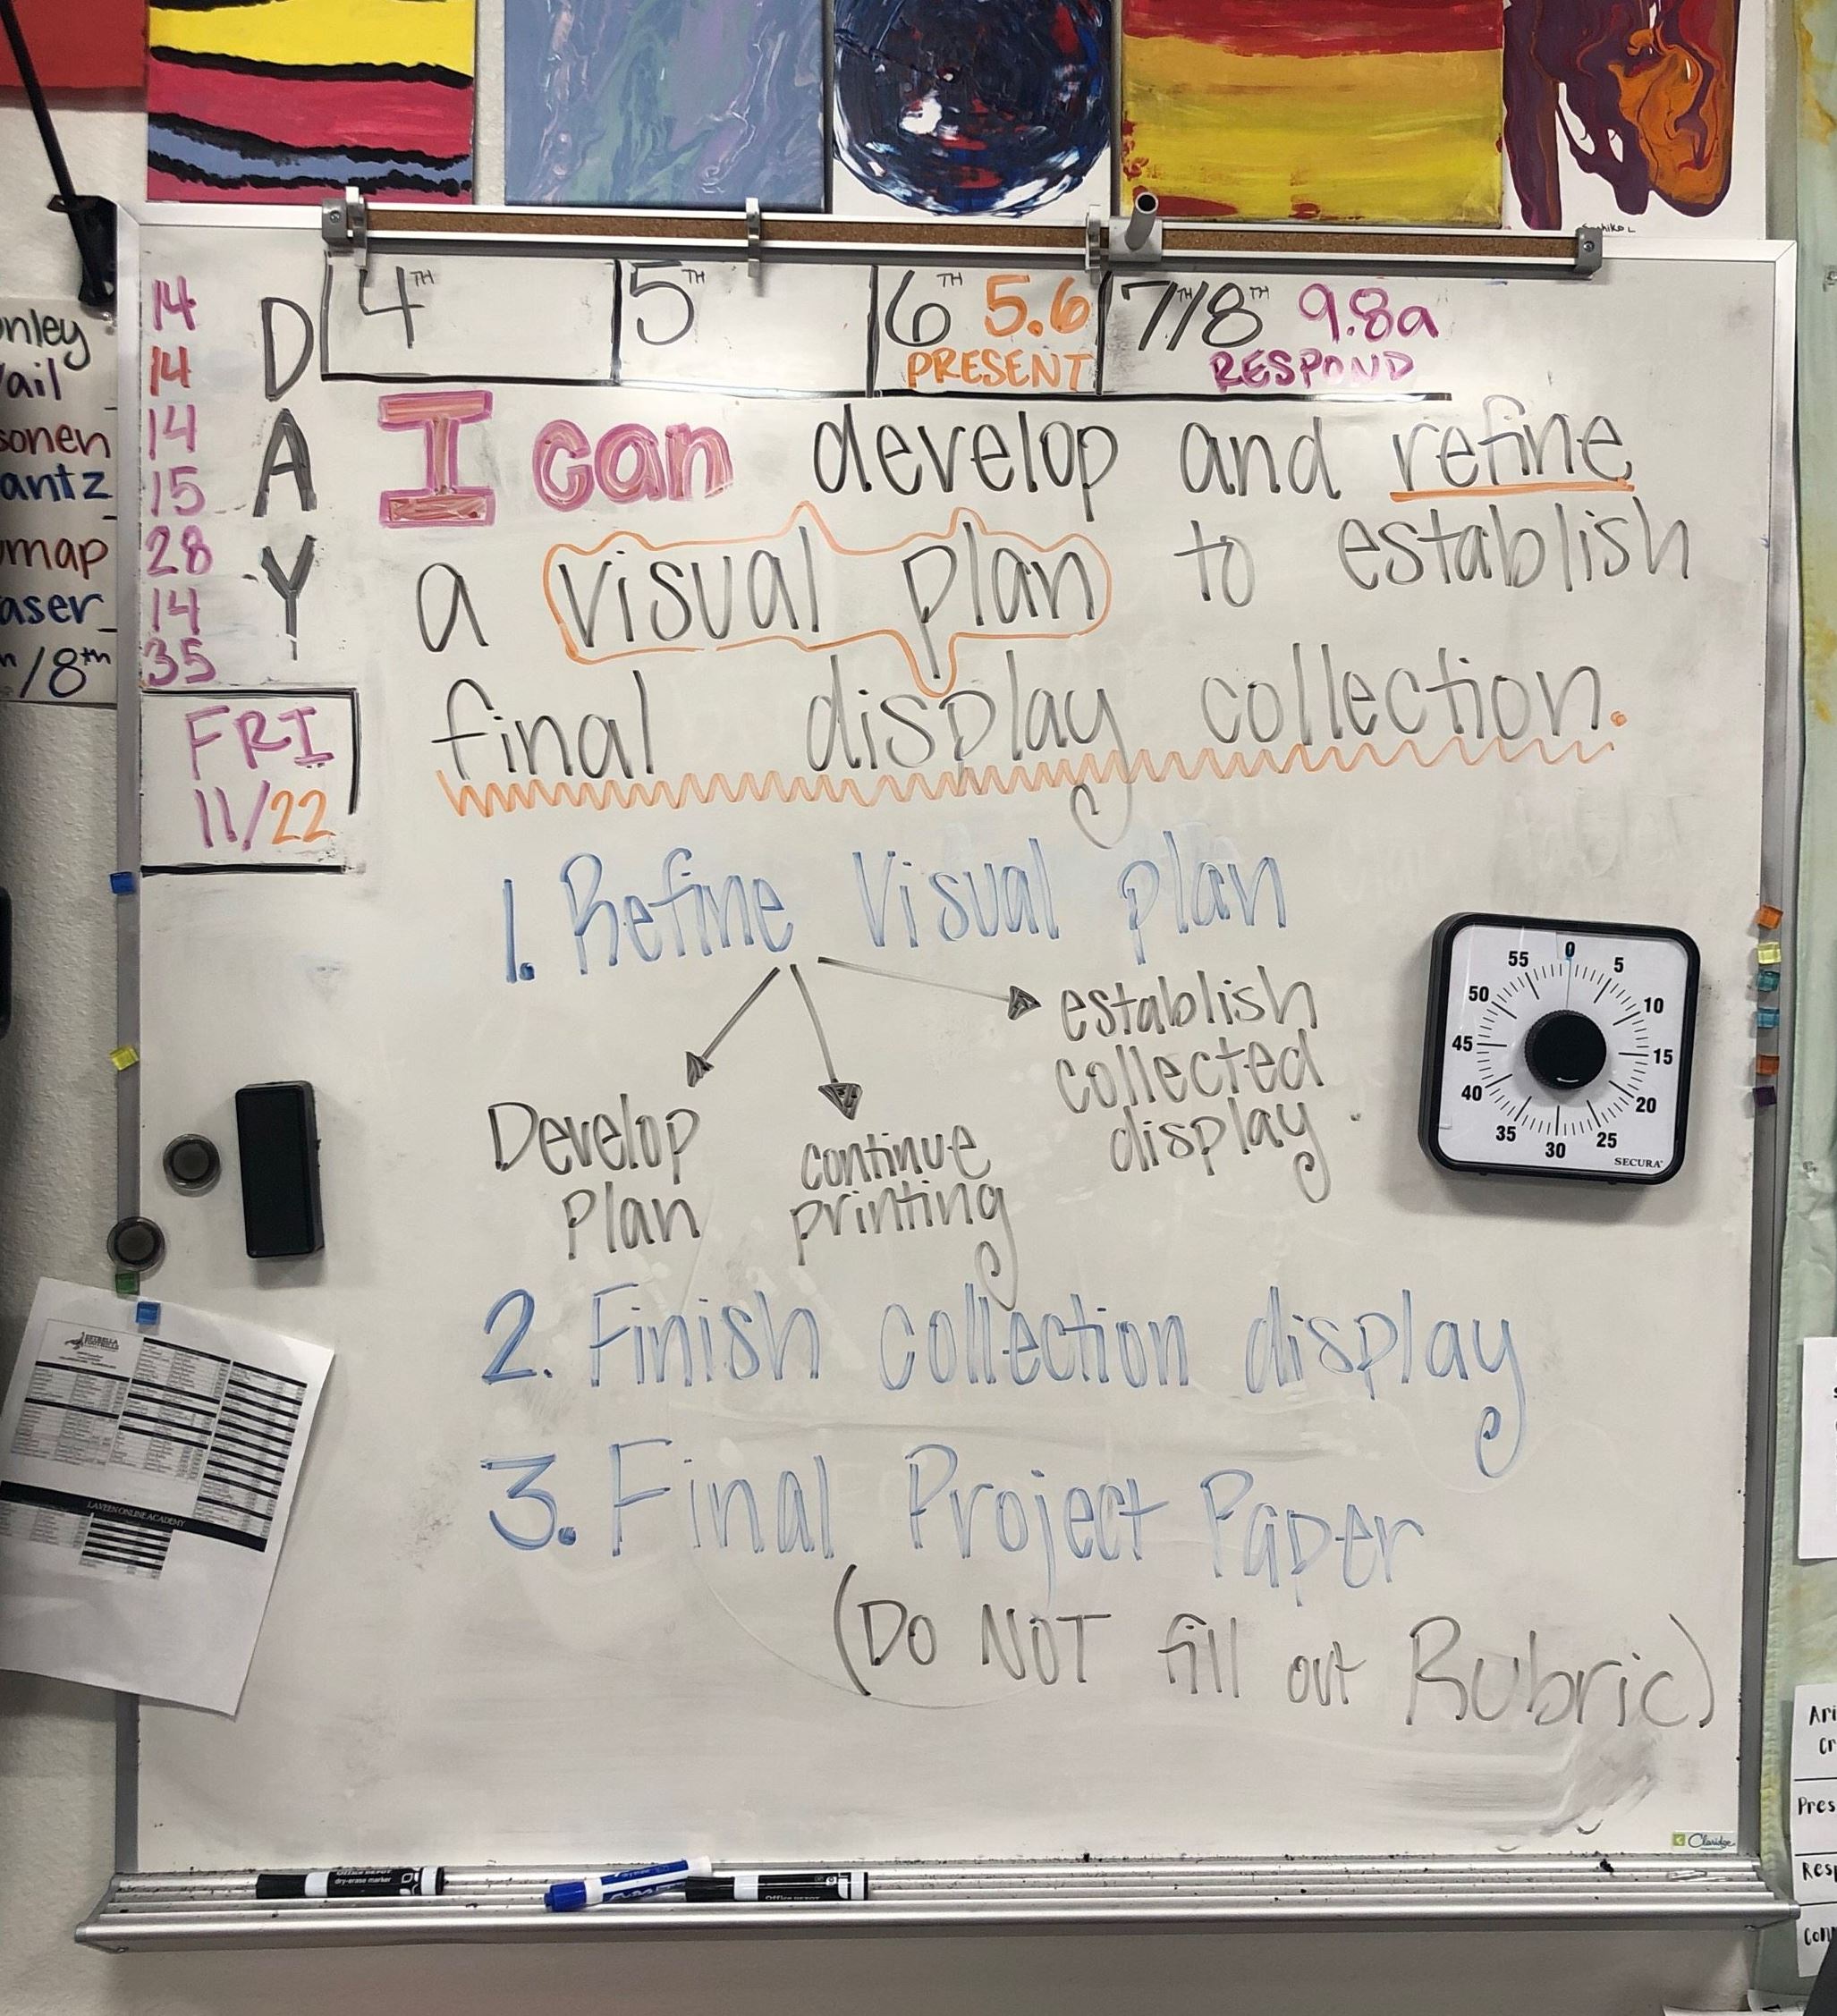 4TH 5TH 6TH 5.6 7TH/8TH 9.8a
PRESENT RESPOND
DAY
14
14
14
15
28
14
35
nley
ail
sonen
antz
map
aser
/8th
FRI
11/22
I can develop and refine
a visual plan to establish
final display collection.
1. Refine Visual plan
Develop
Plan
continue
printing
establish
collected
display.
2. Finish collection display
3. Final Project Paper
(Do NOT fill out Rubric)
0 5 10 15 20 25 30 35 40 45 50 55
SECURA
ESTRELLA
FOOTHILLS
LAVEEN ONLINE ACADEMY
Claridge
OFFICE DEPOT
dry-erase marker
Office DEPOT
Ari
Cr
Pres
Resp
Conn